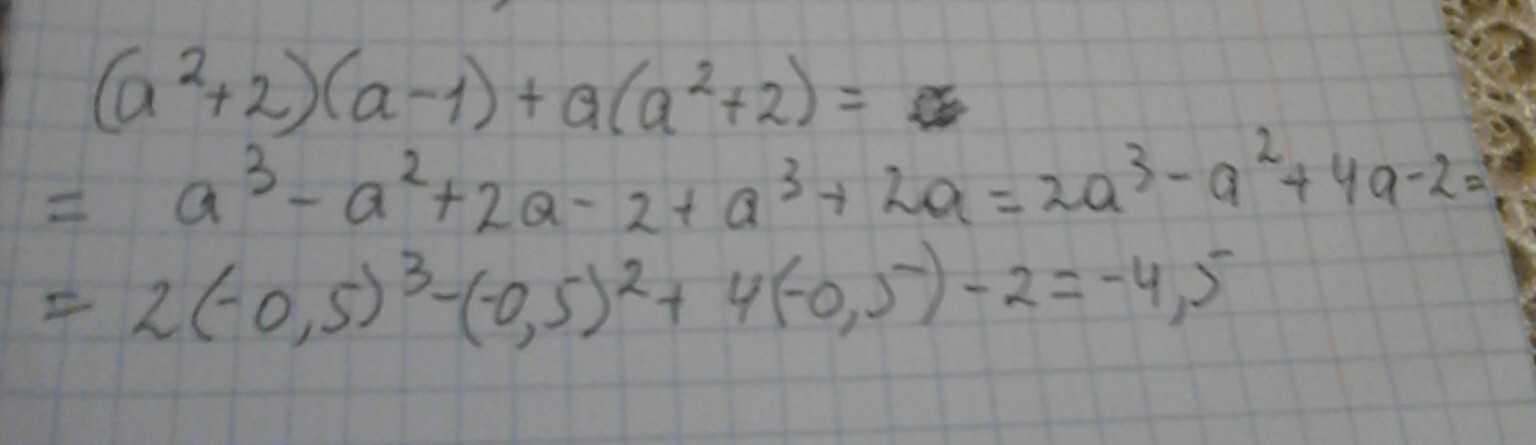 (a²+2)(a-1)+a(a²+2)=
= a³-a²+2a-2+a³+2a=2a³-a²+4a-2=
= 2(-0,5)³-(-0,5)²+4(-0,5)-2=-4,5